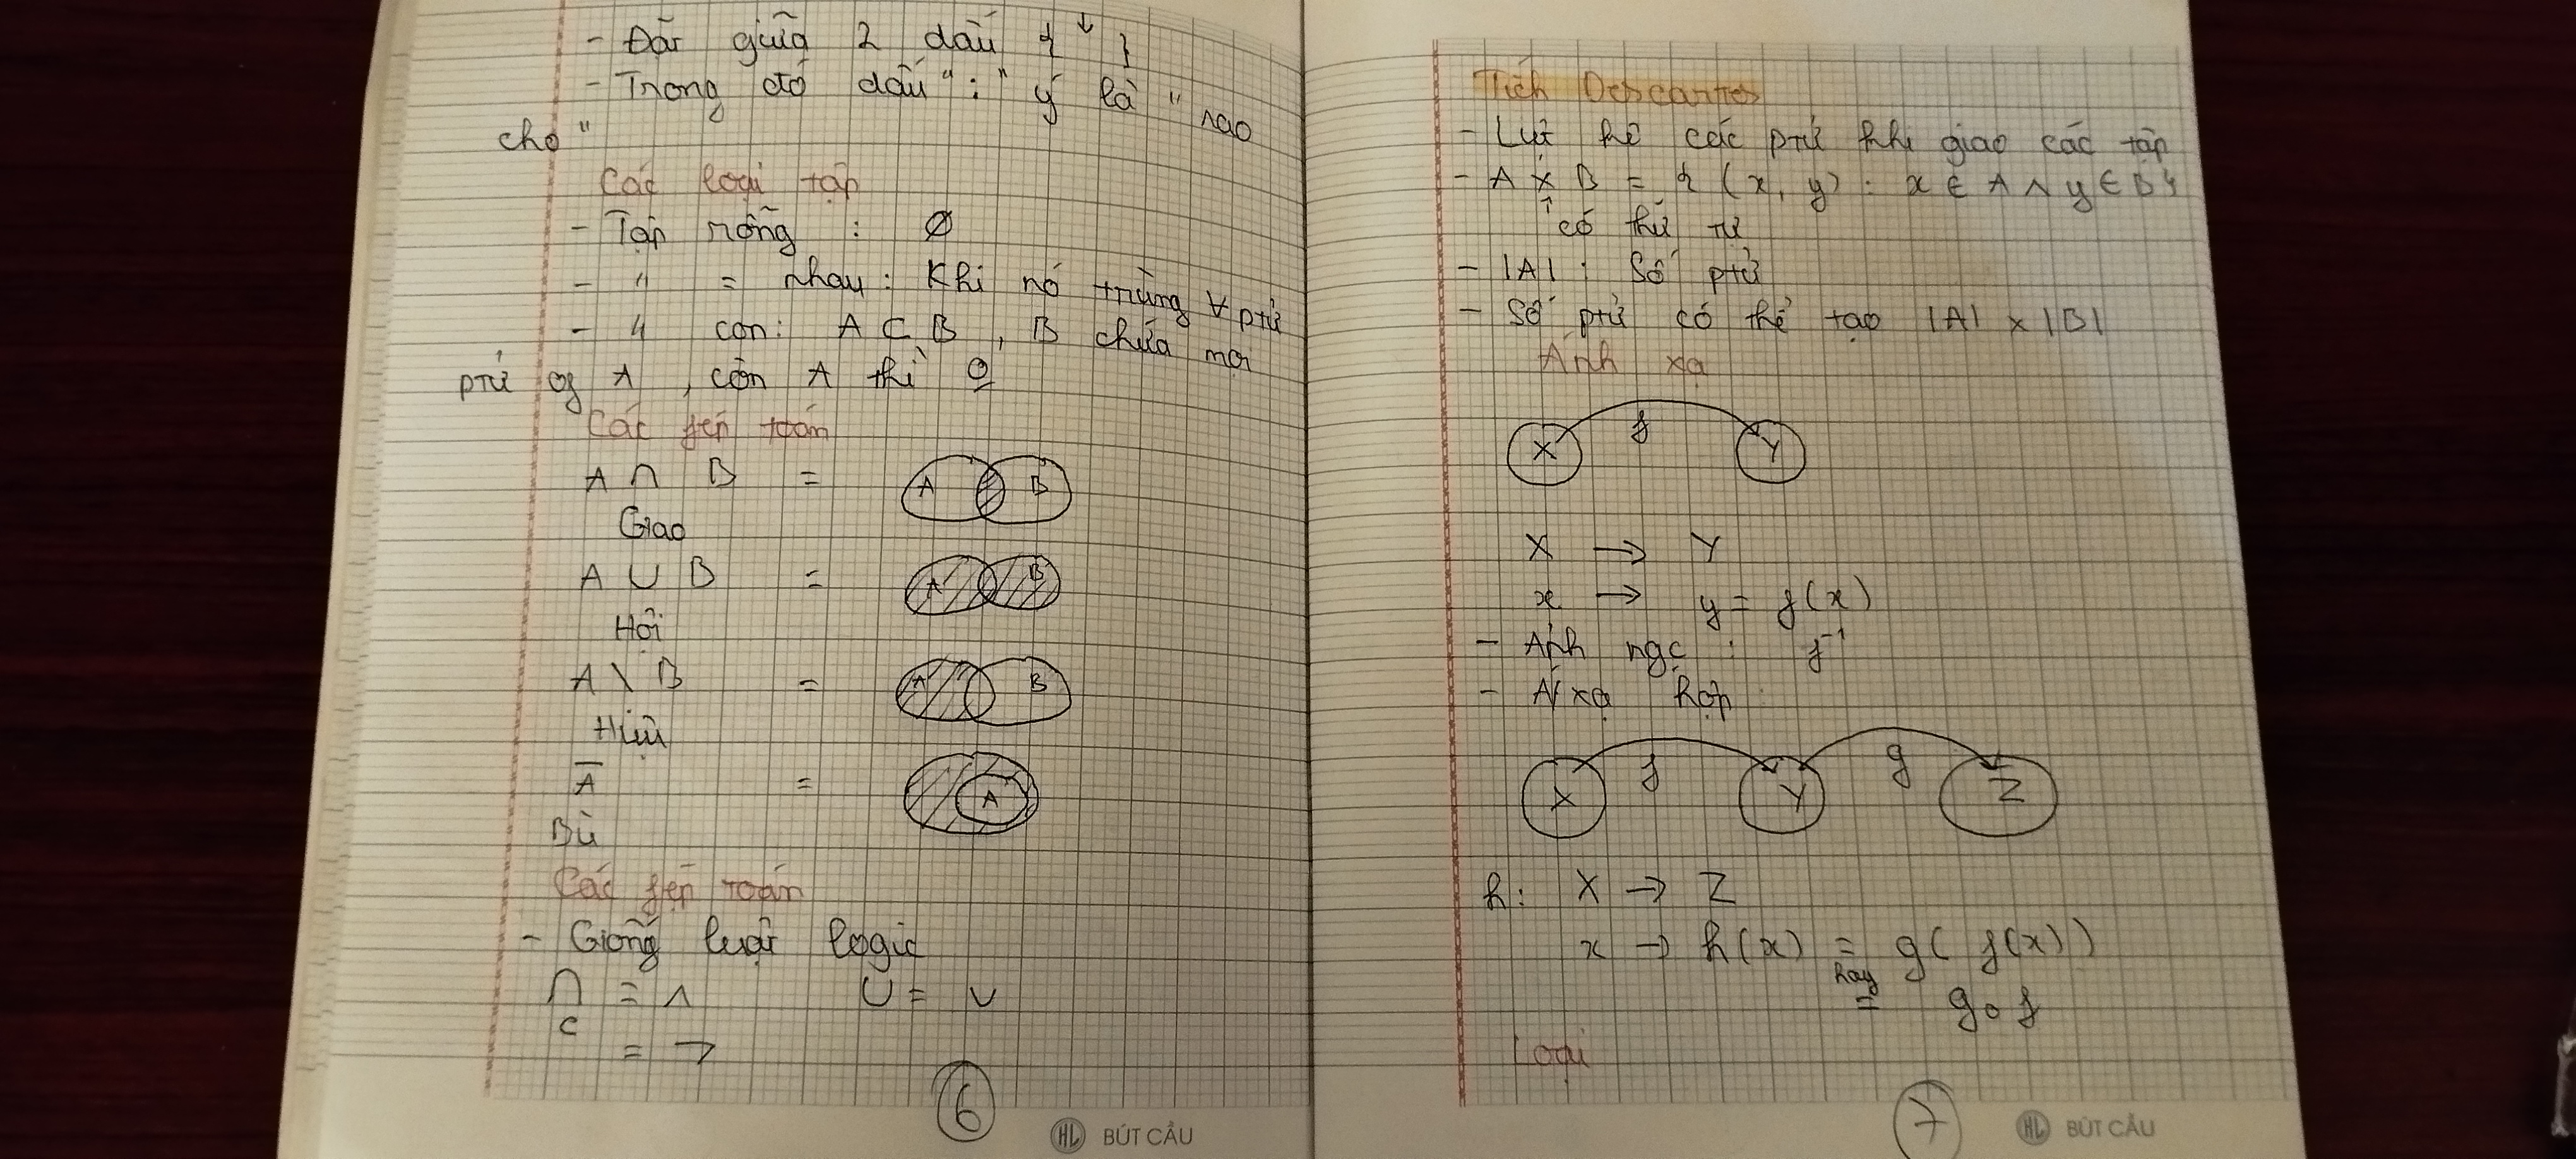 - Đặt giữa 2 dấu { ↓ }
- Trong đó dấu ":" ý là "sao
cho"
Các loại tập
- Tập rỗng : Ø
- " = nhau : Khi nó trùng ∀ ptử
- " con : A ⊂ B , B chứa mọi
ptử of A , còn A thì
Các fép toán
A ∩ B = A B
Giao
A ∪ B = A B
Hội
A \ B = A B
Hiệu
A̅ = A
Bù
Các fép toán
- Giống luật logic
∩ = ∧ ∪ = ∨
C = ¬
6
HL BÚT CẦU
Tích Descartes
- Liệt kê các ptử khi giao các tập
- A × B = { (x, y) : x ∈ A ∧ y ∈ B }
↑ có thứ tự
- |A| : Số ptử
- Số ptử có thể tạo |A| × |B|
Ánh xạ
X f Y
X → Y
x → y = f(x)
- Ảnh ngc : f⁻¹
- A/xạ hợp
X f Y g Z
h : X → Z
x → h(x) = g( f(x))
hay = g∘f
Loại
7
HL BÚT CẦU